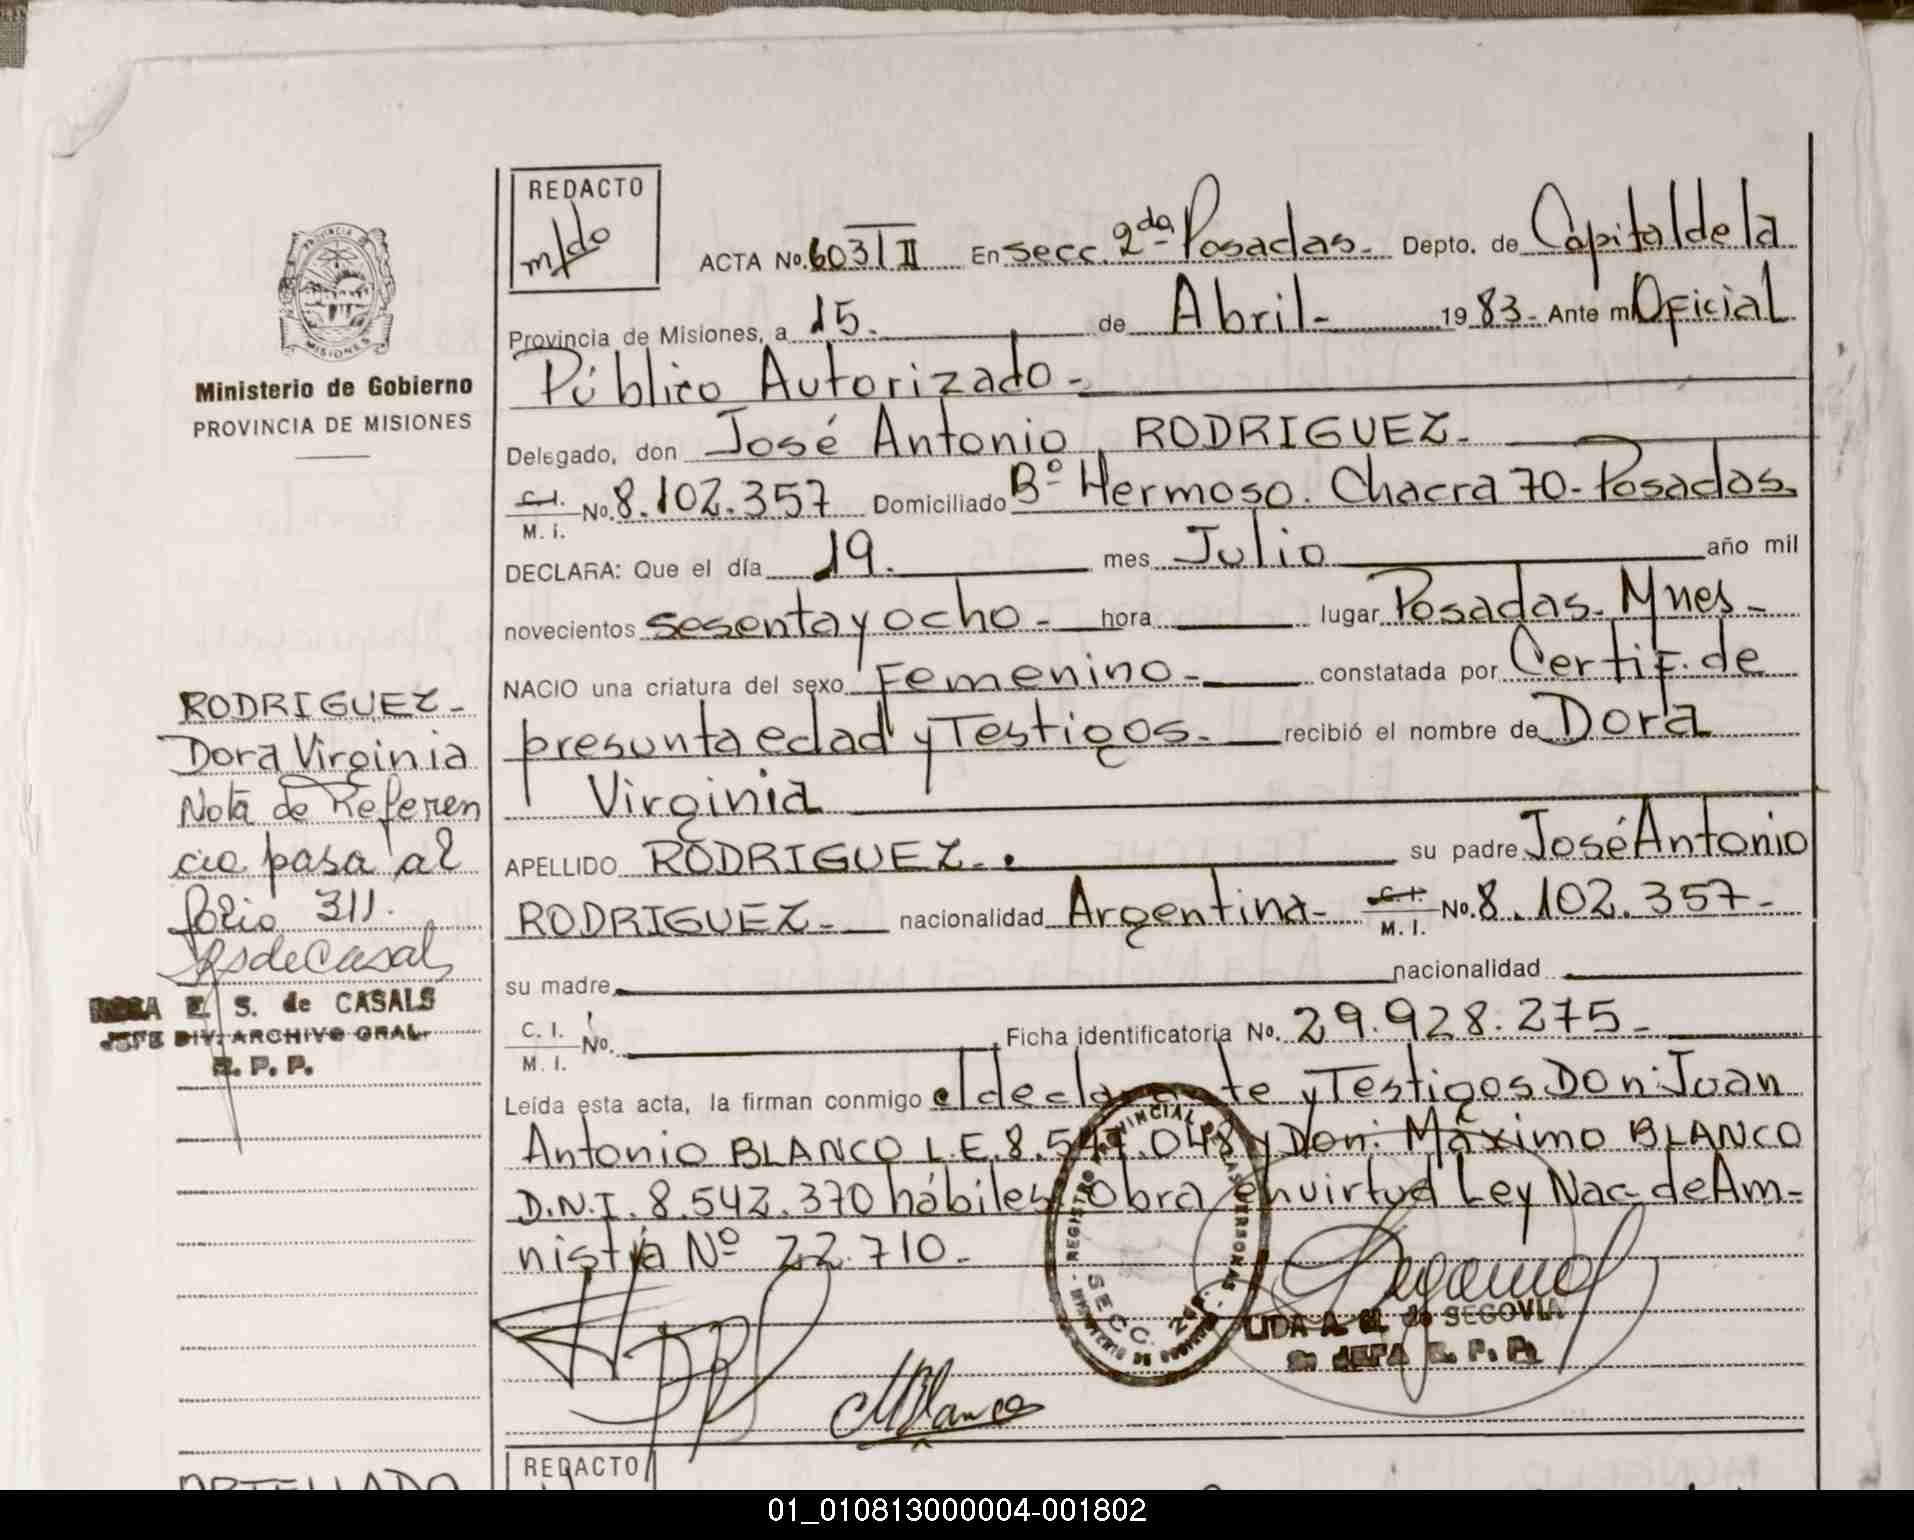 REDACTO
m/do
ACTA No. 603/II En secc. 2da. Posadas. Depto. de Capital de la
Provincia de Misiones, a 15. de Abril - 1983. Ante mi Oficial
Público Autorizado -
Delegado, don José Antonio RODRIGUEZ.
C.I. M. i. No. 8.102.357 Domiciliado Bº Hermoso. Chacra 70. Posadas.
DECLARA: Que el día 19. mes Julio año mil
novecientos sesenta y ocho - hora lugar Posadas. Mnes -
NACIO una criatura del sexo Femenino - constatada por Certif. de
presunta edad y Testigos. recibió el nombre de Dora
Virginia
APELLIDO RODRIGUEZ. su padre José Antonio
RODRIGUEZ - nacionalidad Argentina - C.I. M. I. No. 8.102.357 -
su madre nacionalidad
C. I. M. I. No. Ficha identificatoria No. 29.928.275 -
Leída esta acta, la firman conmigo el declarante y Testigos Don: Juan
Antonio BLANCO L.E. 8.549.048 y Don: Máximo BLANCO
D.N.I. 8.542.370 hábiles. Obra en virtud Ley Nac. de Am-
nistía Nº 22.710. -
MBlanco
REGISTRO PROVINCIAL DE LAS PERSONAS
SECC. 2da.
LIDA A. de SEGOVIA
JEFA R. P. P.
PROVINCIA DE
MISIONES
Ministerio de Gobierno
PROVINCIA DE MISIONES
RODRIGUEZ -
Dora Virginia
Nota de Referen
cia pasa al
folio 311.
RSdeCasals
ROSA E. S. de CASALS
JEFE DIV. ARCHIVO GRAL.
R. P. P.
REDACTO
01_010813000004-001802